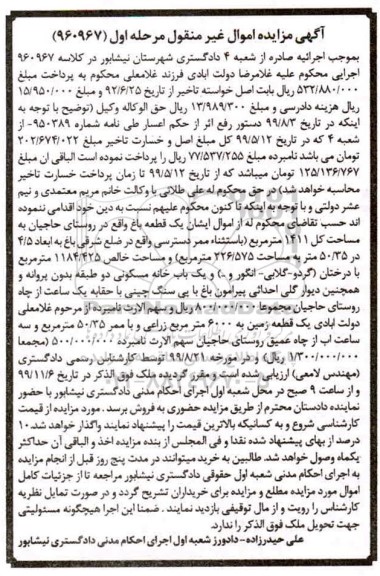 آگهی مزایده اموال غیر منقول مرحله اول (۹۶۰۹۶۷)
بموجب اجرائیه صادره از شعبه ۴ دادگستری شهرستان نیشابور در کلاسه ۹۶۰۹۶۷
اجرایی محکوم علیه غلامرضا دولت ابادی فرزند غلامعلی محکوم به پرداخت مبلغ
۵۳۲/۸۸۰/۰۰۰ ریال بابت اصل خواسته تاخیر از تاریخ ۹۲/۶/۲۵ و مبلغ ۱۵/۹۵۰/۰۰۰
ریال هزینه دادرسی و مبلغ ۱۳/۹۸۹/۳۰۰ ریال حق الوکاله وکیل (توضیح با توجه به
اینکه در تاریخ ۹۹/۸/۳ دستور رفع اثر از حکم اعسار طی نامه شماره ۹۵۰۳۸۹-
شعبه ۴ که در تاریخ ۹۹/۵/۱۲ کل مبلغ اصل و خسارت تاخیر مبلغ ۲۰۲/۶۷۴/۰۲۲
تومان می باشد نامبرده مبلغ ۷۷/۵۳۷/۲۵۵ ریال را پرداخت نموده است الباقی ان مبلغ
۱۲۵/۱۳۶/۷۶۷ تومان میباشد که از تاریخ ۹۹/۵/۱۲ تا زمان پرداخت خسارت تاخیر
محاسبه خواهد شد) در حق محکوم له علی طلائی با وکالت خانم مریم معتمدی و نیم
عشر دولتی و با توجه به اینکه تا کنون محکوم علیهم نسبت به دین خود اقدامی ننموده
اند حسب تقاضای محکوم له از اموال ایشان یک قطعه باغ واقع در روستای حاجیان به
مساحت کل ۱۴۱۱ مترمربع (باستثناء ممر دسترسی واقع در ضلع شرقی باغ به ابعاد ۴/۵
در ۵۰/۳۵ متر به مساحت ۲۲۶/۵۷۵ مترمربع) و مساحت خالص ۱۱۸۴/۴۲۵ مترمربع
با درختان (گردو-گلابی- انگور و..) و یک باب خانه مسکونی دو طبقه بدون پروانه و
همچنین دیوار گلی احداثی پیرامون باغ با پی سنگ چینی با حقابه یک ساعت از چاه
روستای حاجیان مجموعا ۸۰۰/۰۰۰/۰۰۰ ریال و سهم الارث نامبرده از مرحوم غلامعلی
دولت ابادی یک قطعه زمین به ۶۰۰۰ متر مربع زراعی و با ممر ۵۰/۳۵ مترمربع و سه
ساعت اب از چاه عمیق روستای حاجیان سهم الارث نامبرده ۵۰۰/۰۰۰/۰۰۰ (مجمعا
۱/۳۰۰/۰۰۰/۰۰۰ ریال) و در مورخه ۹۹/۸/۲۱ توسط کارشناس رسمی دادگستری
(مهندس لامعی) ارزیابی شده است و مقرر گردیده ملک فوق الذکر در تاریخ ۹۹/۱۱/۶
و از ساعت ۹ صبح در محل شعبه اول اجرای احکام مدنی دادگستری نیشابور با حضور
نماینده دادستان محترم از طریق مزایده حضوری به فروش برسد. مورد مزایده از قیمت
کارشناسی شروع و به کسانیکه بالاترین قیمت را پیشنهاد نمایند واگذار خواهد شد.۱۰
درصد از بهای پیشنهاد شده نقدا و فی المجلس از بنده مزایده اخذ و الباقی آن حداکثر
یکماه وصول خواهد شد. طالبین به خرید میتوانند در مدت پنج روز قبل از انجام مزایده
به اجرای احکام مدنی شعبه اول حقوقی دادگستری نیشابور مراجعه تا از جزئیات کامل
اموال مورد مزایده مطلع و مزایده برای خریداران تشریح گردد و در صورت تمایل نظریه
کارشناس را رویت و از مال توقیفی بازدید نمایند. ضمنا این اجرا هیچگونه مسئولیتی
جهت تحویل ملک فوق الذکر را ندارد.
علی حیدرزاده- دادورز شعبه اول اجرای احکام مدنی دادگستری نیشابور